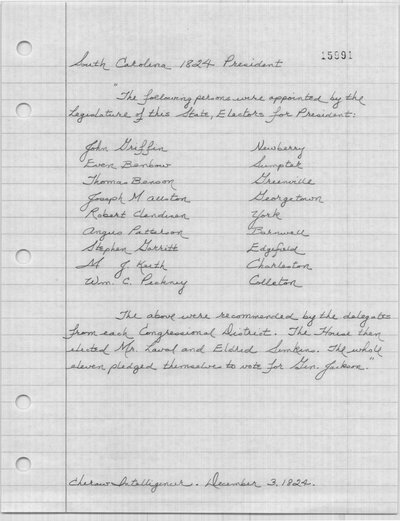 15891
South Carolina 1824 President
"The following persons were appointed by the
Legislature of this State, Electors for President:
John Griffin Newberry
Even Benbow Sumpter
Thomas Benson Greenville
Joseph M Allston Georgetown
Robert Clendinen York
Angus Patterson Barnwell
Stephen Garritt Edgefield
M J Keith Charleston
Wm. C. Pinckney Colleton
The above were recommended by the delegates
from each Congressional District. The House then
elected Mr. Laval and Eldred Simkins. The whole
eleven pledged themselves to vote for Gen. Jackson."
Cheraw Intelligencer. December 3, 1824.